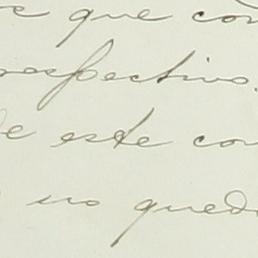 que con
rospectivo.
de este con
no queda